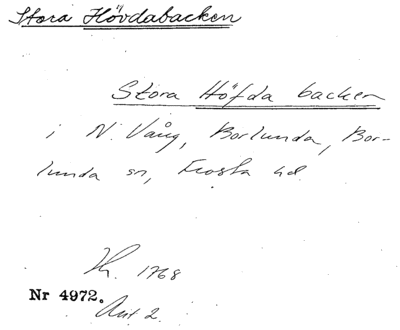 Stora Hövdabacken
Stora Höfda backen
i N. Vång, Borlunda, Bor-
lunda sn, Frosta hd.
1768
Nr 4972.
Akt 2.